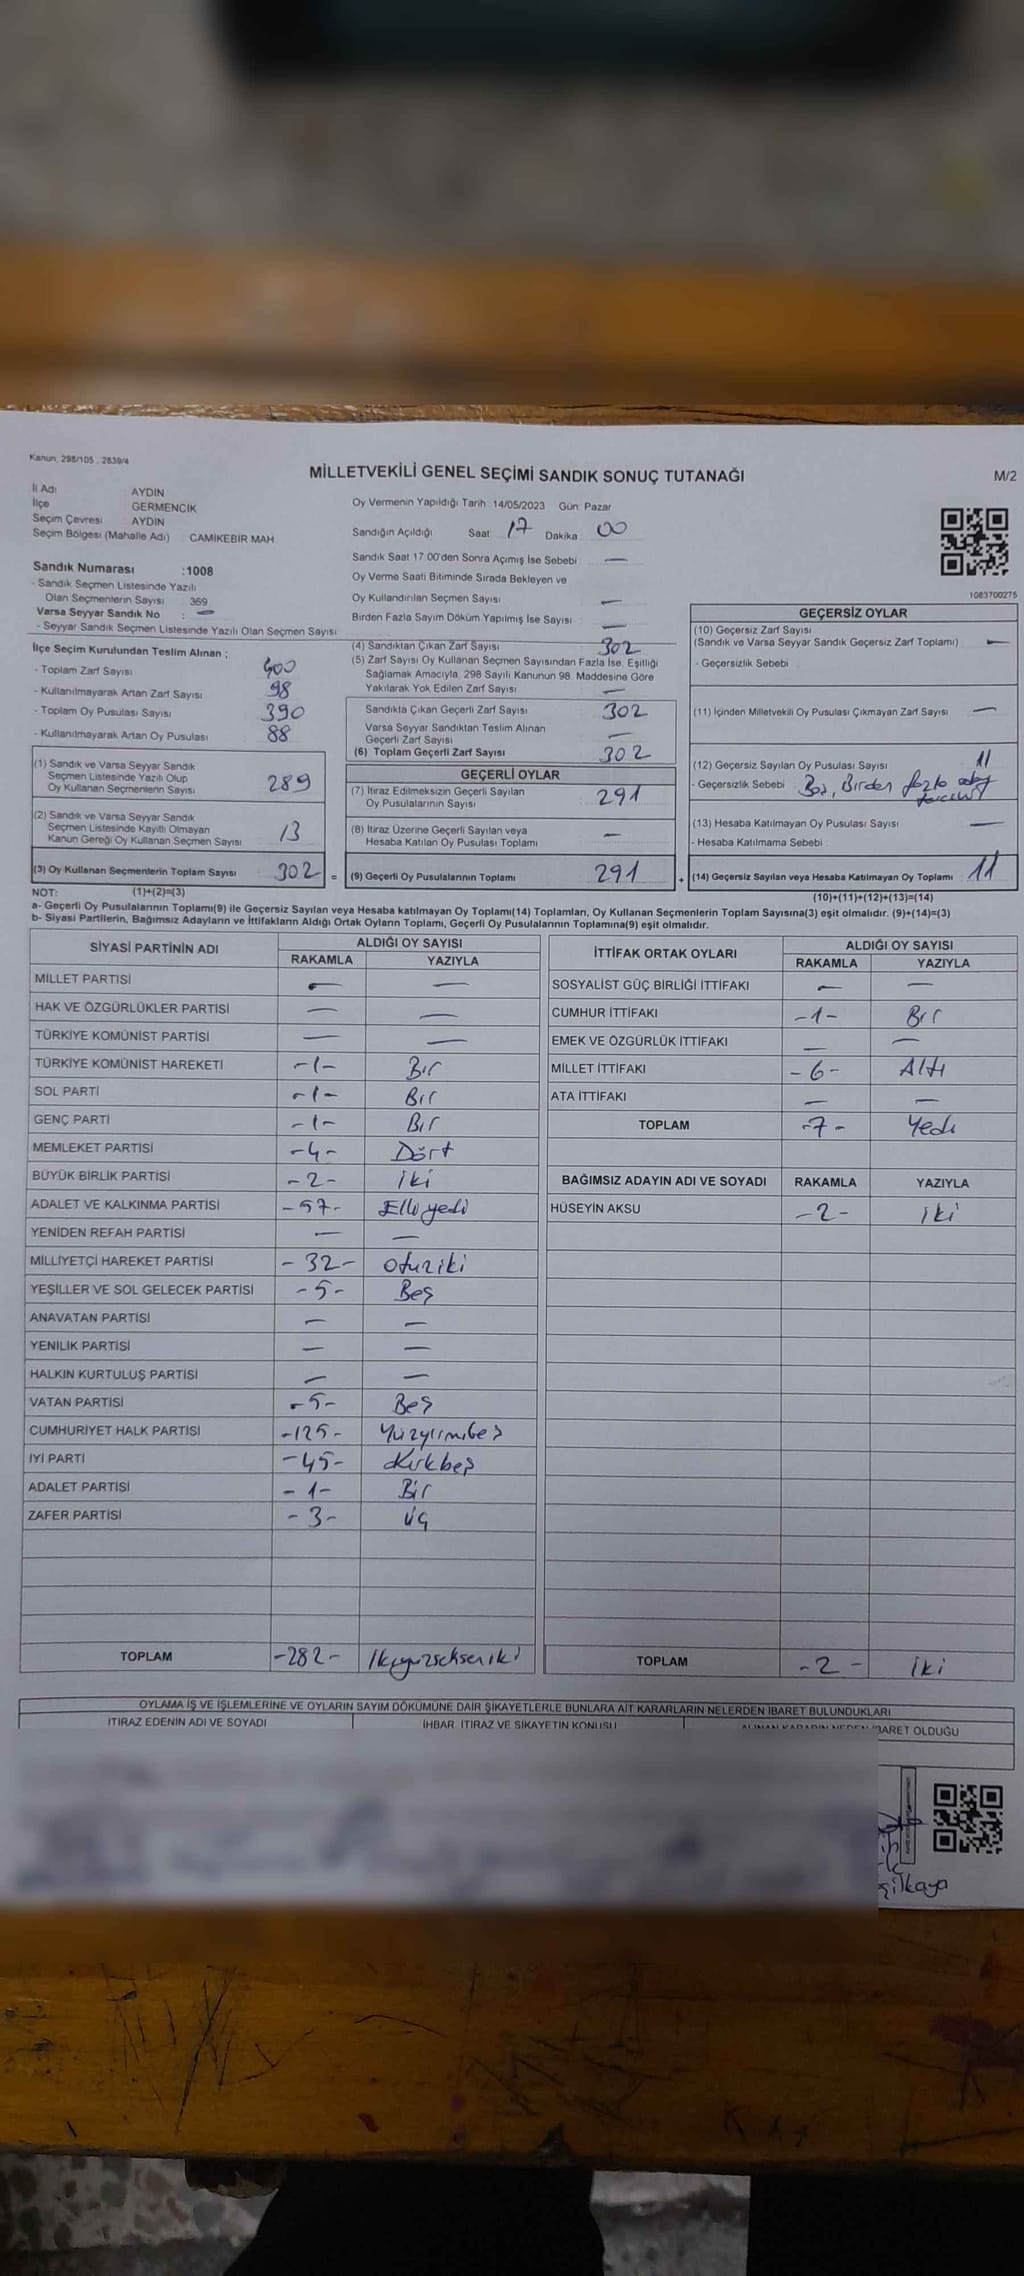 Kanun: 298/105 , 2839/4
MİLLETVEKİLİ GENEL SEÇİMİ SANDIK SONUÇ TUTANAĞI
M/2
İl Adı AYDIN
İlçe GERMENCİK
Seçim Çevresi AYDIN
Seçim Bölgesi (Mahalle Adı) : CAMİKEBİR MAH.
Oy Vermenin Yapıldığı Tarih :14/05/2023 Gün Pazar
Sandığın Açıldığı Saat 17 Dakika 00
Sandık Saat 17:00'den Sonra Açımış İse Sebebi —
Oy Verme Saati Bitiminde Sırada Bekleyen ve
Oy Kullandırılan Seçmen Sayısı —
Birden Fazla Sayım Döküm Yapılmış İse Sayısı —
1083700275
Sandık Numarası :1008
- Sandık Seçmen Listesinde Yazılı
Olan Seçmenlerin Sayısı : 369
Varsa Seyyar Sandık No : —
- Seyyar Sandık Seçmen Listesinde Yazılı Olan Seçmen Sayısı
İlçe Seçim Kurulundan Teslim Alınan ;
- Toplam Zarf Sayısı 400
- Kullanılmayarak Artan Zarf Sayısı 98
- Toplam Oy Pusulası Sayısı 390
- Kullanılmayarak Artan Oy Pusulası 88
(1) Sandık ve Varsa Seyyar Sandık
Seçmen Listesinde Yazılı Olup
Oy Kullanan Seçmenlerin Sayısı 289
(2) Sandık ve Varsa Seyyar Sandık
Seçmen Listesinde Kayıtlı Olmayan
Kanun Gereği Oy Kullanan Seçmen Sayısı 13
(3) Oy Kullanan Seçmenlerin Toplam Sayısı 302 =
(4) Sandıktan Çıkan Zarf Sayısı 302
(5) Zarf Sayısı Oy Kullanan Seçmen Sayısından Fazla İse, Eşitliği
Sağlamak Amacıyla, 298 Sayılı Kanunun 98. Maddesine Göre
Yakılarak Yok Edilen Zarf Sayısı —
Sandıkta Çıkan Geçerli Zarf Sayısı 302
Varsa Seyyar Sandıktan Teslim Alınan
Geçerli Zarf Sayısı —
(6) Toplam Geçerli Zarf Sayısı 302
GEÇERLİ OYLAR
(7) İtiraz Edilmeksizin Geçerli Sayılan
Oy Pusulalarının Sayısı 291
(8) İtiraz Üzerine Geçerli Sayılan veya
Hesaba Katılan Oy Pusulası Toplamı —
(9) Geçerli Oy Pusulalarının Toplamı 291 +
GEÇERSİZ OYLAR
(10) Geçersiz Zarf Sayısı
(Sandık ve Varsa Seyyar Sandık Geçersiz Zarf Toplamı) —
- Geçersizlik Sebebi
(11) İçinden Milletvekili Oy Pusulası Çıkmayan Zarf Sayısı —
(12) Geçersiz Sayılan Oy Pusulası Sayısı 11
- Geçersizlik Sebebi Boş, Birden fazla
(13) Hesaba Katılmayan Oy Pusulası Sayısı —
- Hesaba Katılmama Sebebi
(14) Geçersiz Sayılan veya Hesaba Katılmayan Oy Toplamı 11
NOT: (1)+(2)=(3)
(10)+(11)+(12)+(13)=(14)
a- Geçerli Oy Pusulalarının Toplamı(9) ile Geçersiz Sayılan veya Hesaba katılmayan Oy Toplamı(14) Toplamları, Oy Kullanan Seçmenlerin Toplam Sayısına(3) eşit olmalıdır. (9)+(14)=(3)
b- Siyasi Partilerin, Bağımsız Adayların ve İttifakların Aldığı Ortak Oyların Toplamı, Geçerli Oy Pusulalarının Toplamına(9) eşit olmalıdır.
SİYASİ PARTİNİN ADI ALDIĞI OY SAYISI
RAKAMLA YAZIYLA
MİLLET PARTİSİ — —
HAK VE ÖZGÜRLÜKLER PARTİSİ — —
TÜRKİYE KOMÜNİST PARTİSİ — —
TÜRKİYE KOMÜNİST HAREKETİ -1- Bir
SOL PARTİ -1- Bir
GENÇ PARTİ -1- Bir
MEMLEKET PARTİSİ -4- Dört
BÜYÜK BİRLİK PARTİSİ -2- iki
ADALET VE KALKINMA PARTİSİ -57- Elliyedi
YENİDEN REFAH PARTİSİ — —
MİLLİYETÇİ HAREKET PARTİSİ -32- otuziki
YEŞİLLER VE SOL GELECEK PARTİSİ -5- Beş
ANAVATAN PARTİSİ — —
YENİLİK PARTİSİ — —
HALKIN KURTULUŞ PARTİSİ — —
VATAN PARTİSİ -5- Beş
CUMHURİYET HALK PARTİSİ -125- Yüzyirmibeş
İYİ PARTİ -45- Kırkbeş
ADALET PARTİSİ -1- Bir
ZAFER PARTİSİ -3- üç
TOPLAM -282- ikiyüzsekseniki
İTTİFAK ORTAK OYLARI ALDIĞI OY SAYISI
RAKAMLA YAZIYLA
SOSYALİST GÜÇ BİRLİĞİ İTTİFAKI — —
CUMHUR İTTİFAKI -1- Bir
EMEK VE ÖZGÜRLÜK İTTİFAKI — —
MİLLET İTTİFAKI -6- Altı
ATA İTTİFAKI — —
TOPLAM -7- Yedi
BAĞIMSIZ ADAYIN ADI VE SOYADI RAKAMLA YAZIYLA
HÜSEYİN AKSU -2- iki
TOPLAM -2- iki
OYLAMA İŞ VE İŞLEMLERİNE VE OYLARIN SAYIM DÖKÜMÜNE DAİR ŞİKAYETLERLE BUNLARA AİT KARARLARIN NELERDEN İBARET BULUNDUKLARI
İTİRAZ EDENİN ADI VE SOYADI İHBAR, İTİRAZ VE ŞİKAYETİN KONUSU ALINAN KARARIN NEDEN İBARET OLDUĞU